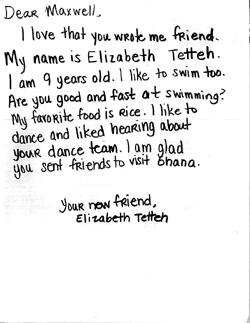 Dear Maxwell,
I love that you wrote me friend.
My name is Elizabeth Tetteh.
I am 9 years old. I like to swim too.
Are you good and fast at swimming?
My favorite food is rice. I like to
dance and liked hearing about
your dance team. I am glad
you sent friends to visit Ghana.
Your new friend,
Elizabeth Tetteh